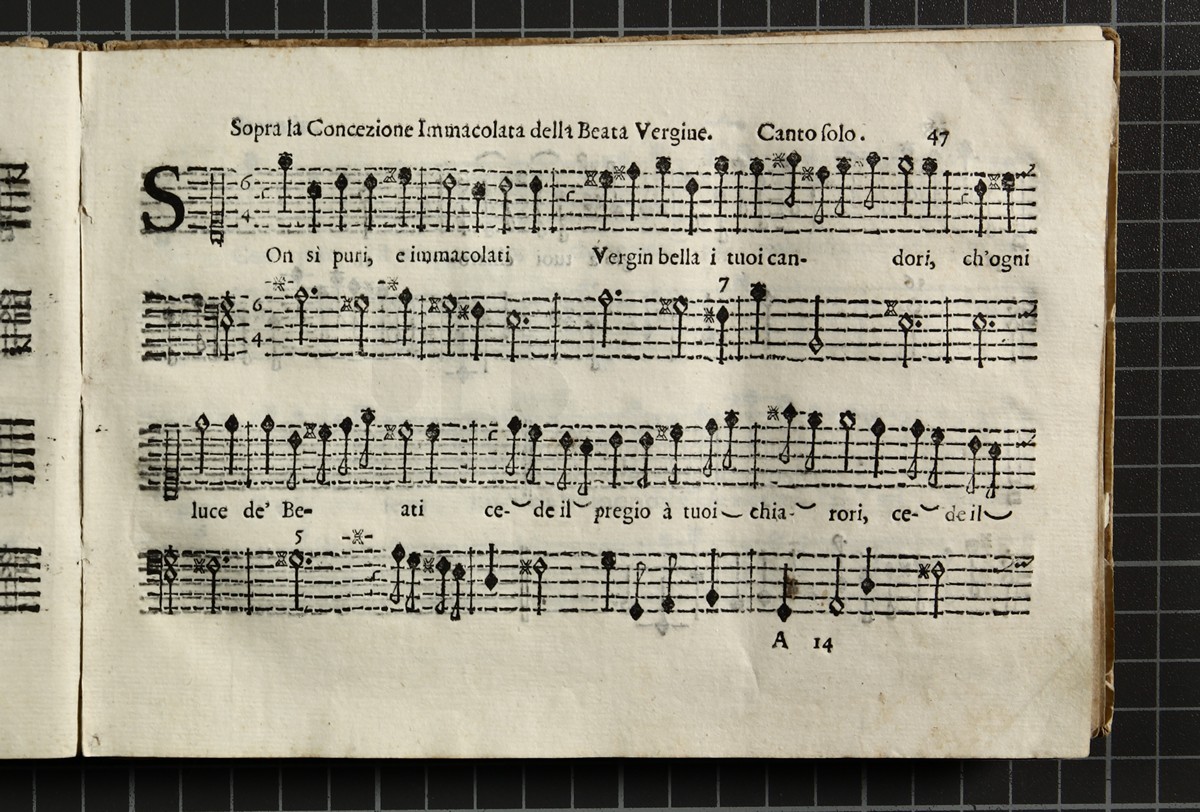 Sopra la Concezione Immacolata della Beata Vergine. Canto ſolo. 47
6 4
SOn sì puri, e immacolati Vergin bella i tuoi can- dori, ch'ogni
7
6 4
luce de' Be- ati ce- de il pregio à tuoi chia- rori, ce- de il
5
A 14